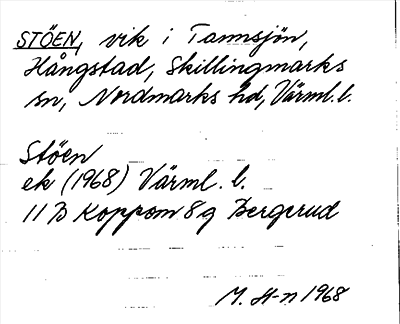 STÖEN, vik i Tannsjön,
Hångstad, Skillingmarks
sn, Nordmarks hd, Värml. l.
Stöen
ek (1968) Värml. l.
11 B Koppom 8 g Bergerud
M. H-n 1968